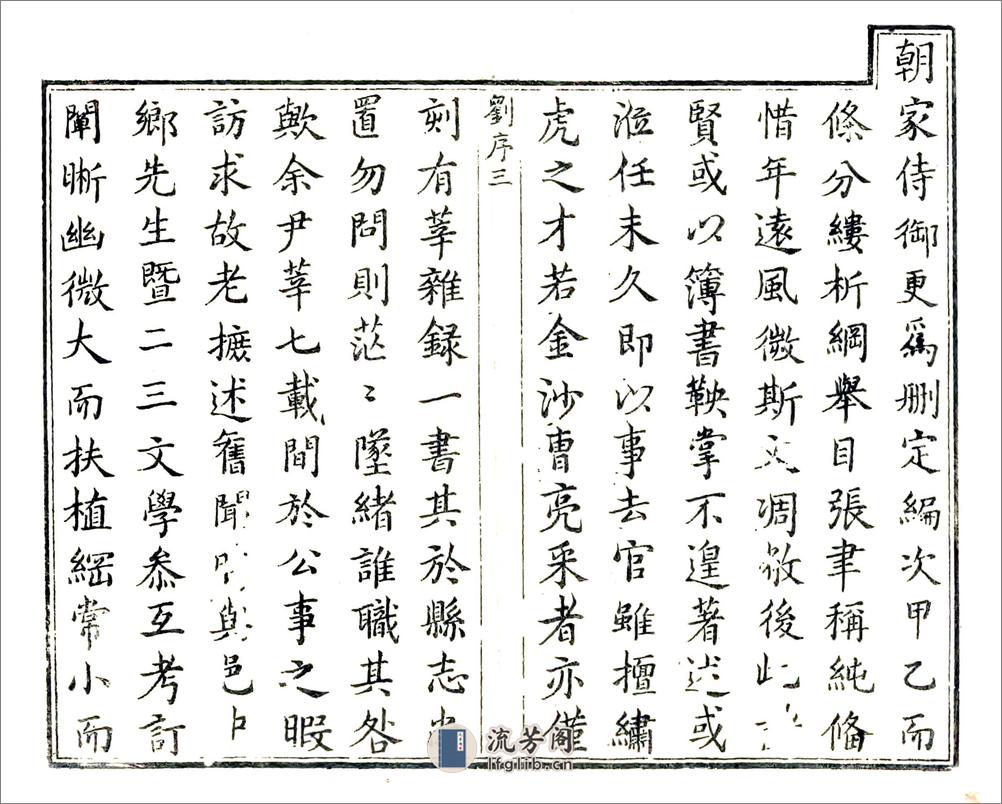 朝家侍御更爲刪定編次甲乙而
條分縷析綱舉目張聿稱純備
惜年遠風微斯文凋敝後此
賢或以簿書鞅掌不遑著述或
涖任未久即以事去官雖擅繡
虎之才若金沙曹亮采者亦僅
劉序三
刻有莘雜録一書其於縣志
置勿問則茫〻墜緒誰職其咎
歟余尹莘七載間於公事之暇
訪求故老摭述舊聞與邑
鄉先生暨二三文學叅互考訂
闡晰幽微大而扶植綱常小而
流芳閣
lfglib.cn